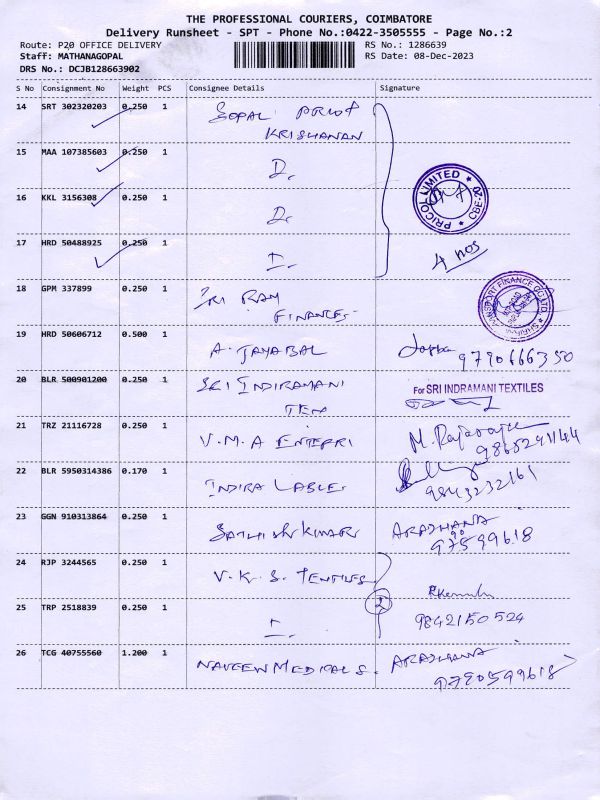 THE PROFESSIONAL COURIERS, COIMBATORE
Delivery Runsheet - SPT - Phone No.:0422-3505555 - Page No.:2
Route: P20 OFFICE DELIVERY RS No.: 1286639
Staff: MATHANAGOPAL RS Date: 08-Dec-2023
DRS No.: DCJB128663902
S No Consignment No Weight PCS Consignee Details Signature
14 SRT 302320203 0.250 1 GOPAL
KRISHANAN
15 MAA 107385603 0.250 1 D.
PRICOL LIMITED CBE-02
16 KKL 3156308 0.250 1 D.
17 HRD 50488925 0.250 1
4 nos
18 GPM 337899 0.250 1 SRI RAM
FINANCES
TRANSPORT FINANCE CO LTD
19 HRD 50606712 0.500 1 A. JAYABAL 9790666350
20 BLR 500901200 0.250 1 SRI INDIRAMANI
TEX
For SRI INDRAMANI TEXTILES
21 TRZ 21116728 0.250 1 V.M.A ENTERPRI M. Rajarajan
22 BLR 5950314386 0.170 1 INDIRA LABLES
9843232161
23 GGN 910313864 0.250 1 SATHISH KUMAR ARADHANA
24 RJP 3244565 0.250 1 V.K.S. TEXTILES
25 TRP 2518839 0.250 1 2 9842150524
26 TCG 40755560 1.200 1 NAVEEN MEDICALS. ARADHANA
9790599618